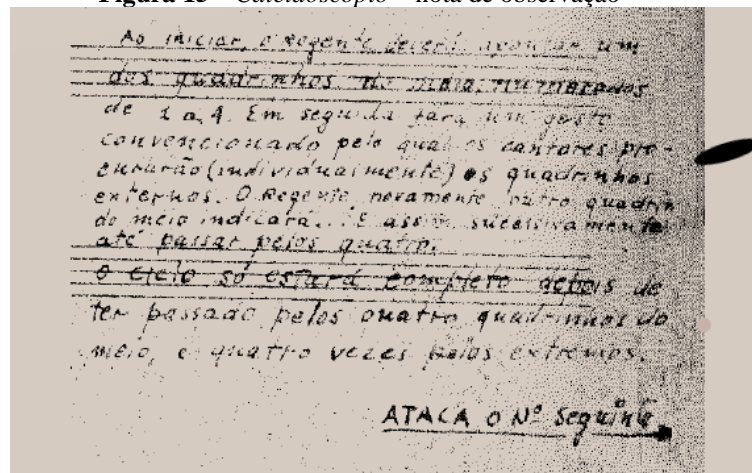 Figura 15 – Caleidoscópio – nota de observação
Ao iniciar, o Regente deverá apontar um
dos quadrinhos do meio, numerados
de 1 a 4. Em seguida fará um gesto
convencionado pelo qual os cantores pro-
curarão (individualmente) os quadrinhos
externos. O Regente, novamente outro quadrin
do meio indicará... E assim sucessivamente
até passar pelos quatro.
O ciclo só estará completo depois de
ter passado pelos quatro quadrinhos do
meio, e quatro vezes pelos extremos.
ATACA O Nº Seguinte